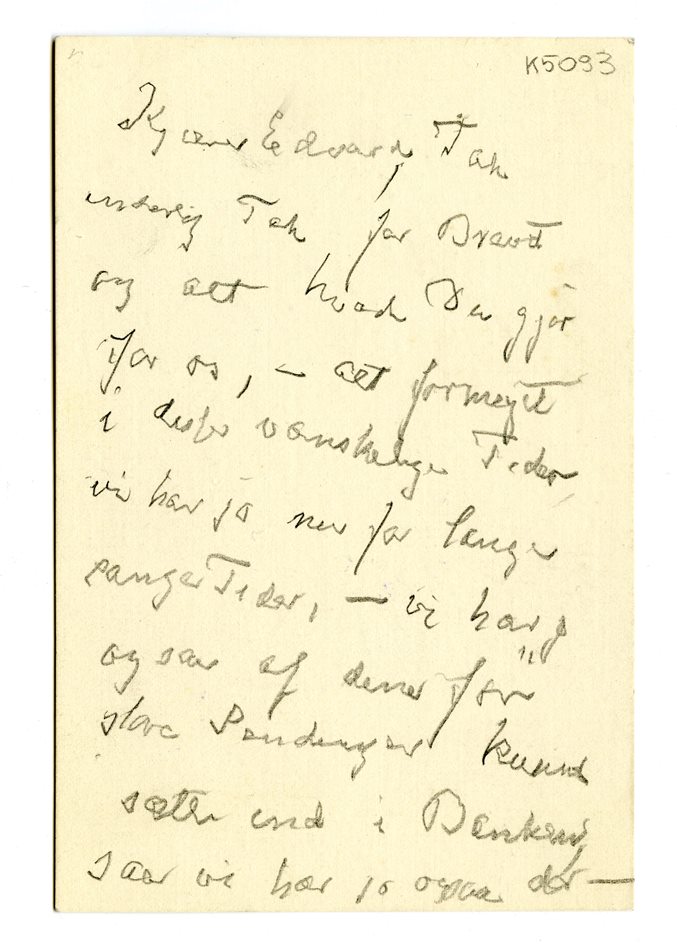 K5093
Kjære Edvard, Tak
inderlig Tak for Brevet
og alt hvad Du gjør
for os, – alt formeget
i disse vanskelige Tider
vi har jo nu for lange
lange Tider, – vi har jo
ogsaa af dine før
store Sendinger kund
sætte ind i Banken,
saa vi har jo ogsaa der –